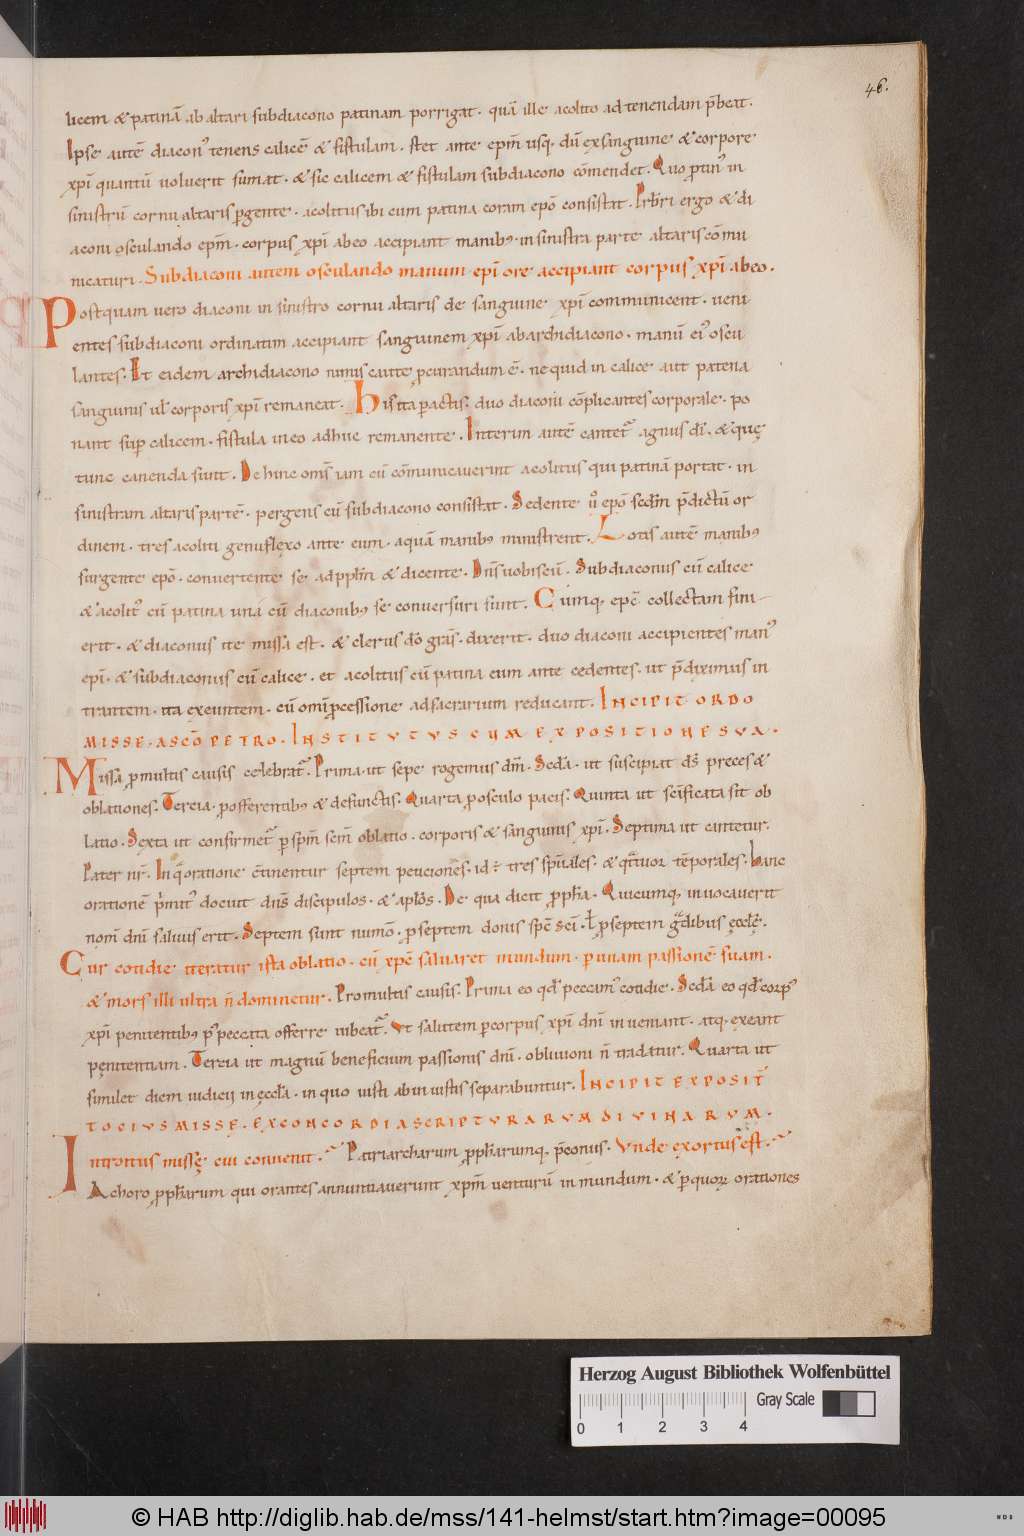 46.
licem & patinā ab altari subdiacono patinam porrigat. quā ille acolito ad tenendam p̄beat.
Ipse autē diacon᾿ tenens calicē & fistulam. stet ante epm̄ usq; dū ex sanguine & corpore
xpī quantū uoluerit sumat. & sic calicem & fistulam subdiacono cōmendet. Quo ptin᾿ in
sinistrū cornu altaris pgente. acolitus ibi cum patina coram epō consistat. Prb̄ri ergo & di
aconi osculando epm̄. corpus xpī ab eo accipiant manib; in sinistra parte altaris cōmu
nicaturi. Subdiaconi autem osculando manum epī ore accipiant corpus xpī ab eo.
Postquam uero diaconi in sinistro cornu altaris de sanguine xpī communicent. ueni
entes subdiaconi ordinatim accipiant sanguinem xpī ab archidiacono. manū ei᾿ oscu
lantes. Et eidem archidiacono nimis caute pcurandum ē. ne quid in calice aut patena
sanguinis ul̄ corporis xpī remaneat. His ita pactis. duo diaconi cōplicantes corporale. po
nant sup calicem. fistula in eo adhuc remanente. Interim autē cantet᾿ agnus dī. & quę
tunc canenda sunt. De hinc oms̄ iam cū cōmunicauerint acolitus qui patinā portat. in
sinistram altaris partē. pergens cū subdiacono consistat. Sedente ū epō sedm̄ p̄dictū or
dinem. tres acoliti genuflexo ante eum. aquā manib; ministrent. Lotis autē manib;
surgente epō. conuertente se ad pplm̄ & dicente. Dn̄s uobiscū. Subdiaconus cū calice
& acolit᾿ cū patina una cū diaconib; se conuersuri sunt. Cumq; epc̄ collectam fini
erit. & diaconus ite missa est. & clerus dō grās. dixerit. duo diaconi accipientes man᾿
epī. & subdiaconus cū calice. et acolitus cū patina eum ante cedentes. ut p̄diximus in
trantem. ita exeuntem. cū omī pcessione ad sacrarium reducant. INCIPIT ORDO
MISSE. A SCO PETRO. INSTITVTVS CVM EXPOSITIONE SVA.
Missa p multis causis celebrat᾿. Prima. ut sepe rogemus dm̄. Scda. ut suscipiat ds̄ preces &
oblationes. Tercia. p offerentib; & defunctis. Quarta p osculo pacis. Quinta ut scīficata sit ob
latio. Sexta ut confirmet᾿ p spm̄ scm̄ oblatio. corporis & sanguinis xpī. Septima ut cantetur.
Pater nr̄. In q oratione c̄tinentur septem peticiones. id: tres spuāles. & qtuor tēporales. Hanc
orationē p̄mit᾿ docuit dn̄s discipulos. & aplōs. De qua dicit pph̄a. Quicumq; inuocauerit
nom̄ dnī saluus erit. Septem sunt numō. p septem donis spc̄ scī. l̄ p septem gdibus ęcclę.
Cur cotidie iteratur ista oblatio. cū xpc̄ saluaret mundum. p unam passionē suam.
& mors illi ultra n̄ dominetur. Pro multis causis. Prima eo qd̄ peccam᾿ cotidie. Scda eo qd̄ corp᾿
xpī penitentib; p᾿ peccata offerre iubeat᾿. Ut salutem p corpus xpī dnī inueniant. atq; exeant
penitentiam. Tercia ut magnū beneficium passionis dnī. obliuioni n̄ tradatur. Quarta ut
similet diem iudicij in ęccla. in quo iusti ab iniustis separabuntur. INCIPIT EXPOSIT̄
TOCIVS MISSE. EX CONCORDIA SCRIPTVRARVM DIVINARVM.
Introitus missę cui conuenit. Patriarcharum pph̄arumq; p̄conus. Vnde exortus est.
A choro pph̄arum qui orantes annuntiauerunt xpm̄ uenturū in mundum. & p quor orationes
Herzog August Bibliothek Wolfenbüttel
0 1 2 3 4
Gray Scale
© HAB http://diglib.hab.de/mss/141-helmst/start.htm?image=00095